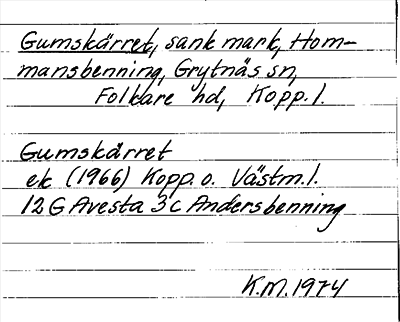 Gumskärret, sank mark, Hom-
mansbenning, Grytnäs sn,
Folkare hd, Kopp. l.
Gumskärret
ek (1966) Kopp. o. Västm. l.
12 G Avesta 3 c Andersbenning
K.M. 1974